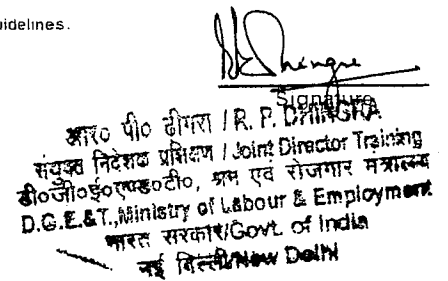 uidelines.
Signature
आर० पी० ढींगरा / R. P. DHINGRA
संयुक्त निदेशक प्रशिक्षण / Joint Director Training
डी०जी०ई०एण्ड०टी०, श्रम एवं रोजगार मंत्रालय
D.G.E.&T., Ministry of Labour & Employment
भारत सरकार/Govt. of India
नई दिल्ली/New Delhi